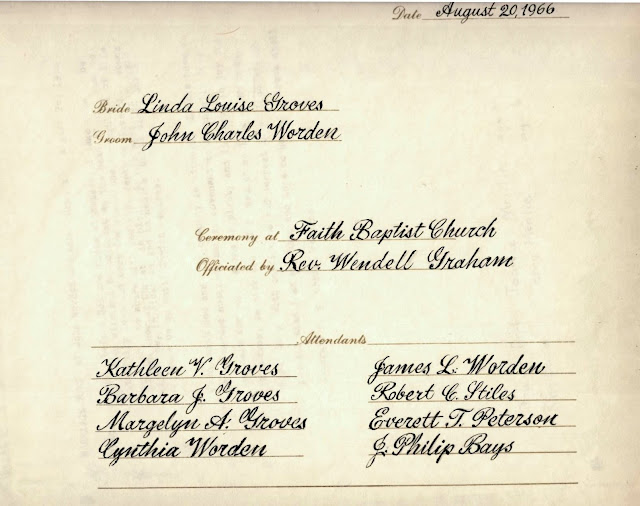 Date August 20, 1966
Bride Linda Louise Groves
Groom John Charles Worden
Ceremony at Faith Baptist Church
Officiated by Rev. Wendell Graham
Attendants
Kathleen V. Groves James L. Worden
Barbara J. Groves Robert C. Stiles
Margelyn A. Groves Everett T. Peterson
Cynthia Worden J. Philip Bays